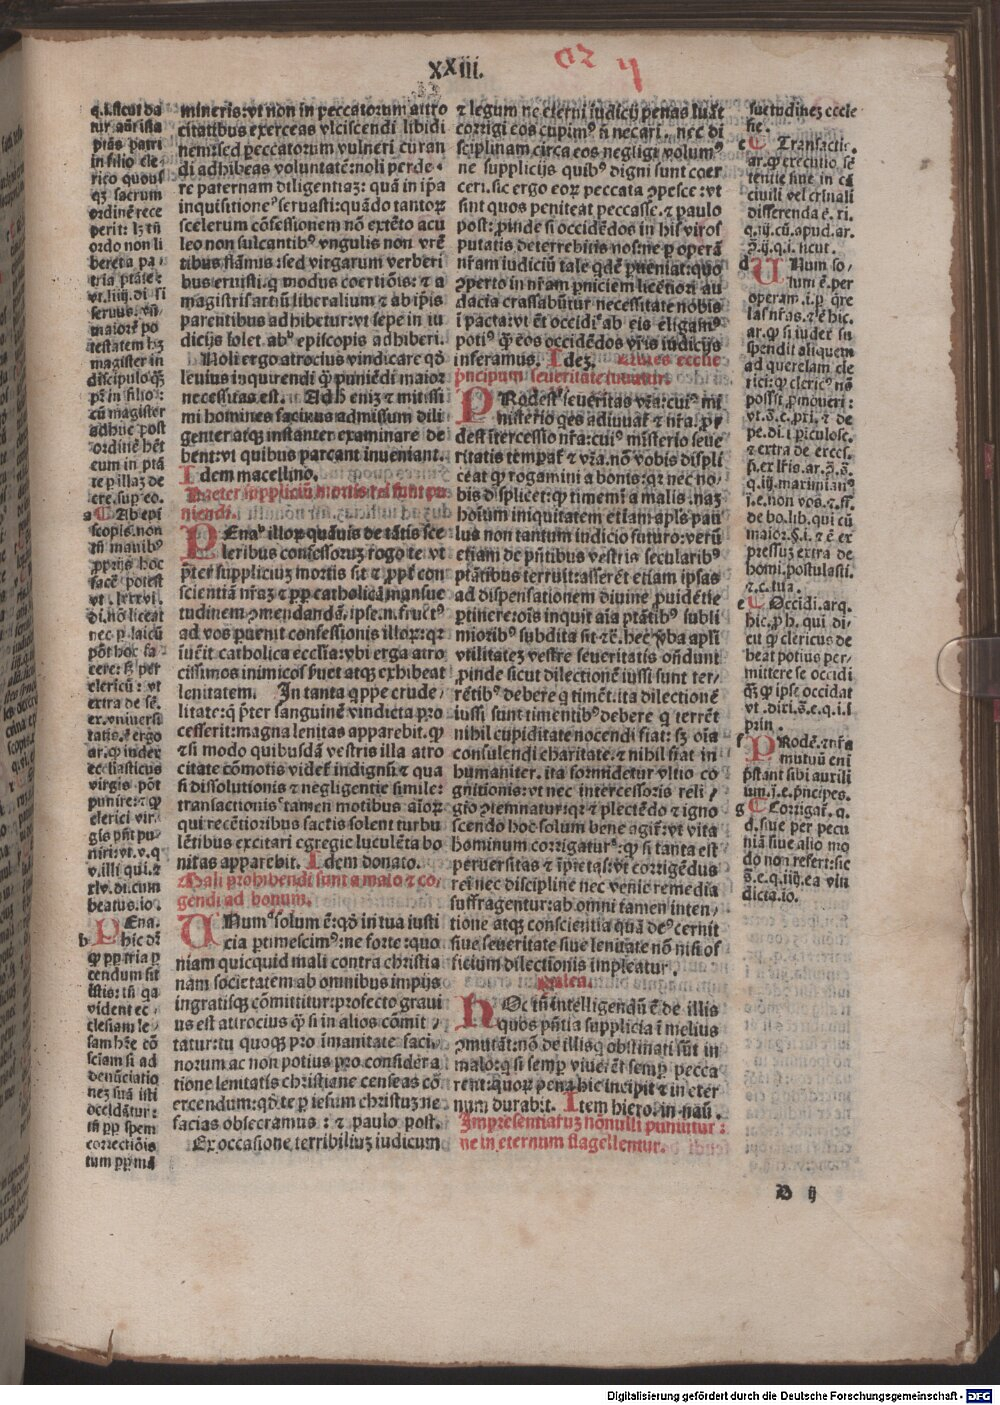 XXiii.
q.i.sicut da
tur aũ ista
pias patri
in filio cle
rico quous
qʒ sacrum
ordinē rece
perit: lʒ tñ
ordo non li
beret a pa-
tria ptāte:
vt.liiij.di.si
seruus. vñ
maiorē po
testatem hʒ
magister in
discipulo qʒ
pr̄ in filio:
cū magister
adhuc post
ordinē hēt
eum in ptā
te
a Ab epi
scopis. non
tñ manibꝰ
proprijs hoc
facē potest
vt .lxxxvi.
di.nō liceat
nec p laicū
pōt hoc fa
cere: sʒ per
clericū: vt
extra de sē.
ex.vniuersi
tatis. ē ergo
ar. ꝙ iudex
ecclesiasticus
virgis pōt
punire: ꝙ
clerici vir-
gis pñt pu-
niri: vt. v. q
v.illi qui. ⁊
xlv.di.cum
beatus.io.
b PEna.
hic dr̄
ꝙ pp tria p
cendum sit
istis: tñ qa
vident ec-
clesiam le-
sam
sciam si ad
denūciatio
neʒ suā isti
occidātur:
tñ pp spem
correctiōis
tum pp mā
mineris: vt non in peccatorum attro
citatibus exerceas vlciscendi libidi
nem: sed peccatorum vulneri curan
di adhibeas voluntatē: noli perde-
re paternam diligentiaʒ: quā in ip̄a
inquisitione seruasti: quādo tantoꝝ
scelerum cōfessionem nō extēto acu
leo non sulcantibꝰ vngulis non vrē
tibus flāmis: sed virgarum verberi
bus eruisti. q modus coertiōis: ⁊ a
magistris artiū liberalium ⁊ ab ip̄is
parentibus adhibetur: vt sepe in iu
dicijs solet abꝰ episcopis adhiberi.
Noli ergo atrocius vindicare qd̄
leuius inquirendi q̄ puniēdi maior
necessitas est. Ad h̄ enīʒ ⁊ mitissi
mi homines facinus admissum dili
genter atqʒ instanter examinare de
bent: vt quibus parcant inueniant.
Idem macellino.
Preter suppliciū mortis rei sunt pu
niendi.
PEnaꝰ illoꝝ quāuis de tātis sce
leribus confessoruʒ rogo te vt
pter suppliciuʒ mortis sit ⁊ ꝓpt con
scientiā nraʒ ⁊ pp catholicā mansue
tudinem ꝯmendandā. ipse. n. fructꝰ
ad vos puenit confessionis illoꝝ: qꝛ
iuēit catholica ecclia: vbi erga atro
cissimos inimicos huet atqʒ exhibeat
lenitatem. In tanta qppe crude-
litate: q pter sanguinē vindicta pro
cesserit: magna lenitas apparebit. ꝙ
⁊ si modo quibusdā vestris illa atro
citate cōmotis videt indignsū ⁊ qua
si dissolutionis ⁊ negligentie simile:
transactionis tamen motibus aīoꝝ
qui recētioribus factis solent turbu
lētibus excitari egregie luculēta bo
nitas apparebit. Idem donato.
Mali prohibendi sunt a malo ⁊ co-
gendi ad bonum.
UNumꝰ solum ē: qd̄ in tua iusti
cia ptimescimꝰ: ne forte: quo
niam quicquid mali contra christia
nam societatem ab omnibus impijs
ingratisqʒ cōmittitur: profecto graui
us est atrocius q̄ si in alios cōmit-
tatur: tu quoqʒ pro imanitate faci-
norum ac non potius pro considera
tione lenitatis christiane censeas cō
ercendum: qd̄ te p iesum christuʒ ne-
facias obsecramus: ⁊ paulo post.
Ex occasione terribiliuʒ iudicum
⁊ legum ne eterni iudicij penas luāt
corrigi eos cupimꝰ ñ necari. nec di
sciplinam circa eos negligi volumꝰ
ne supplicijs quibꝰ digni sunt coer
ceri. sic ergo eoꝝ peccata ꝯpesce: vt
sint quos peniteat peccasse. ⁊ paulo
post: proinde si occidēdos in his viros
putatis deterrebitis nos: ne p operā
nr̄am iudiciū tale qdē pueniat: quo
ꝯperto in nr̄am pniciem licēnori au
dacia crassabūtur necessitate nobis
ipacta: vt ēt occidi ab eis eligamꝰ
potiꝰ q̄ eos occidēdos vr̄is iudicijs
inferamus. Ideʒ.
principum seueritate iuuatur
PRodest seueritas vr̄a: cuiꝰ mi
nisterio qes adiuuat ⁊ nr̄a. pr
dest itercessio nr̄a: cuiꝰ misterio seue
ritatis temperat ⁊ vr̄a. nō vobis displi
ceat ꝙ rogamini a bonis: qꝛ nec no
bis displicet: ꝙ timemi a malis. naʒ
hoium iniquitatem etiam apl̄s pau
lus non tantum iudicio futuro: verū
etiam de pñtibus vestris secularibꝰ
ptātibus terruit: asserēt etiam ipsas
ad dispensationem diuine puidētie
ptinere: oīs inquit aīa ptātibꝰ subli
mioribꝰ subdita sit ⁊c̄. hec vba apl̄i
vtilitateʒ vestre seueritatis oñdunt
proinde sicut dilectionē iussi sunt ter-
rētibꝰ debere q timēt. ita dilectionē
iussi sunt timentibꝰ debere q terrēt
nihil cupiditate nocendi fiat: sʒ oīa
consulendi charitate. ⁊ nihil fiat in
humaniter. ita formidetur vltio co
gnitionis: vt nec intercessoris reli-
gio ꝯtemnatur: qꝛ ⁊ plectēdo ⁊ igno
scendo hoc solum bene agit: vt vita
hominum corrigatur: ꝙ si tanta est
peruersitas ⁊ īpietas: vt corrigēdus
rei nec discipline nec venie remedia
suffragentur: ab omni tamen inten-
tione atqʒ conscientia quā deꝰ cernit
siue seueritate siue lenitate nō nisi of
ficium dilectionis impleatur.
palea.
HOc tñ intelligendū ē de illis
quos pñtia supplicia ī melius
ꝯmutāt: nō de illisqʒ obstinati sūt in
malo: ꝙ si semp viuerēt semp pecca
rent: quoꝝ pena hic incipit ⁊ in eter
num durabit. Item hiero. in nau.
Impresentiatuʒ nonulli puniutur:
ne in eternum flagellentur.
suetudineʒ eccle
sie.
c Transactio.
ar. ꝙ executio sē
tentie siue in cā
ciuili vel criali
differenda ē. xi.
q.iij.cū apud. ar.
d UNum so-
lum ē. per
operam .i. p qre
las nr̄as. ⁊ ē hic.
ar. ꝙ si iudex su
spendit aliquem
ad querelam cle
rici: ꝙ clericꝰ nō
possit pmoueri:
pe.di.i piculose.
⁊ extra de excess.
q.iij.
i.e. non vos. ⁊ ff.
de bo.lib. qui cū
maior. §.i. ⁊ ē ex
pressuʒ extra de
homi. postulasti.
⁊.c. tua.
e Occidi. arg.
hic. p h. qui di-
cūt ꝙ clericus de
beat potius per-
mittere se occidi
qʒ ꝙ ipse occidat
vt
prin.
f PRodē. ⁊ nr̄a
mutuū eni
pstant sibi auxili
um. j.e. pncipes.
g Corrigat. q.
d. siue per pecu
niā siue alio mo
do non refert: sic
s. e. q. iiij. ea vin
dicta. io.
D ij
Digitalisierung gefördert durch die Deutsche Forschungsgemeinschaft - DFG